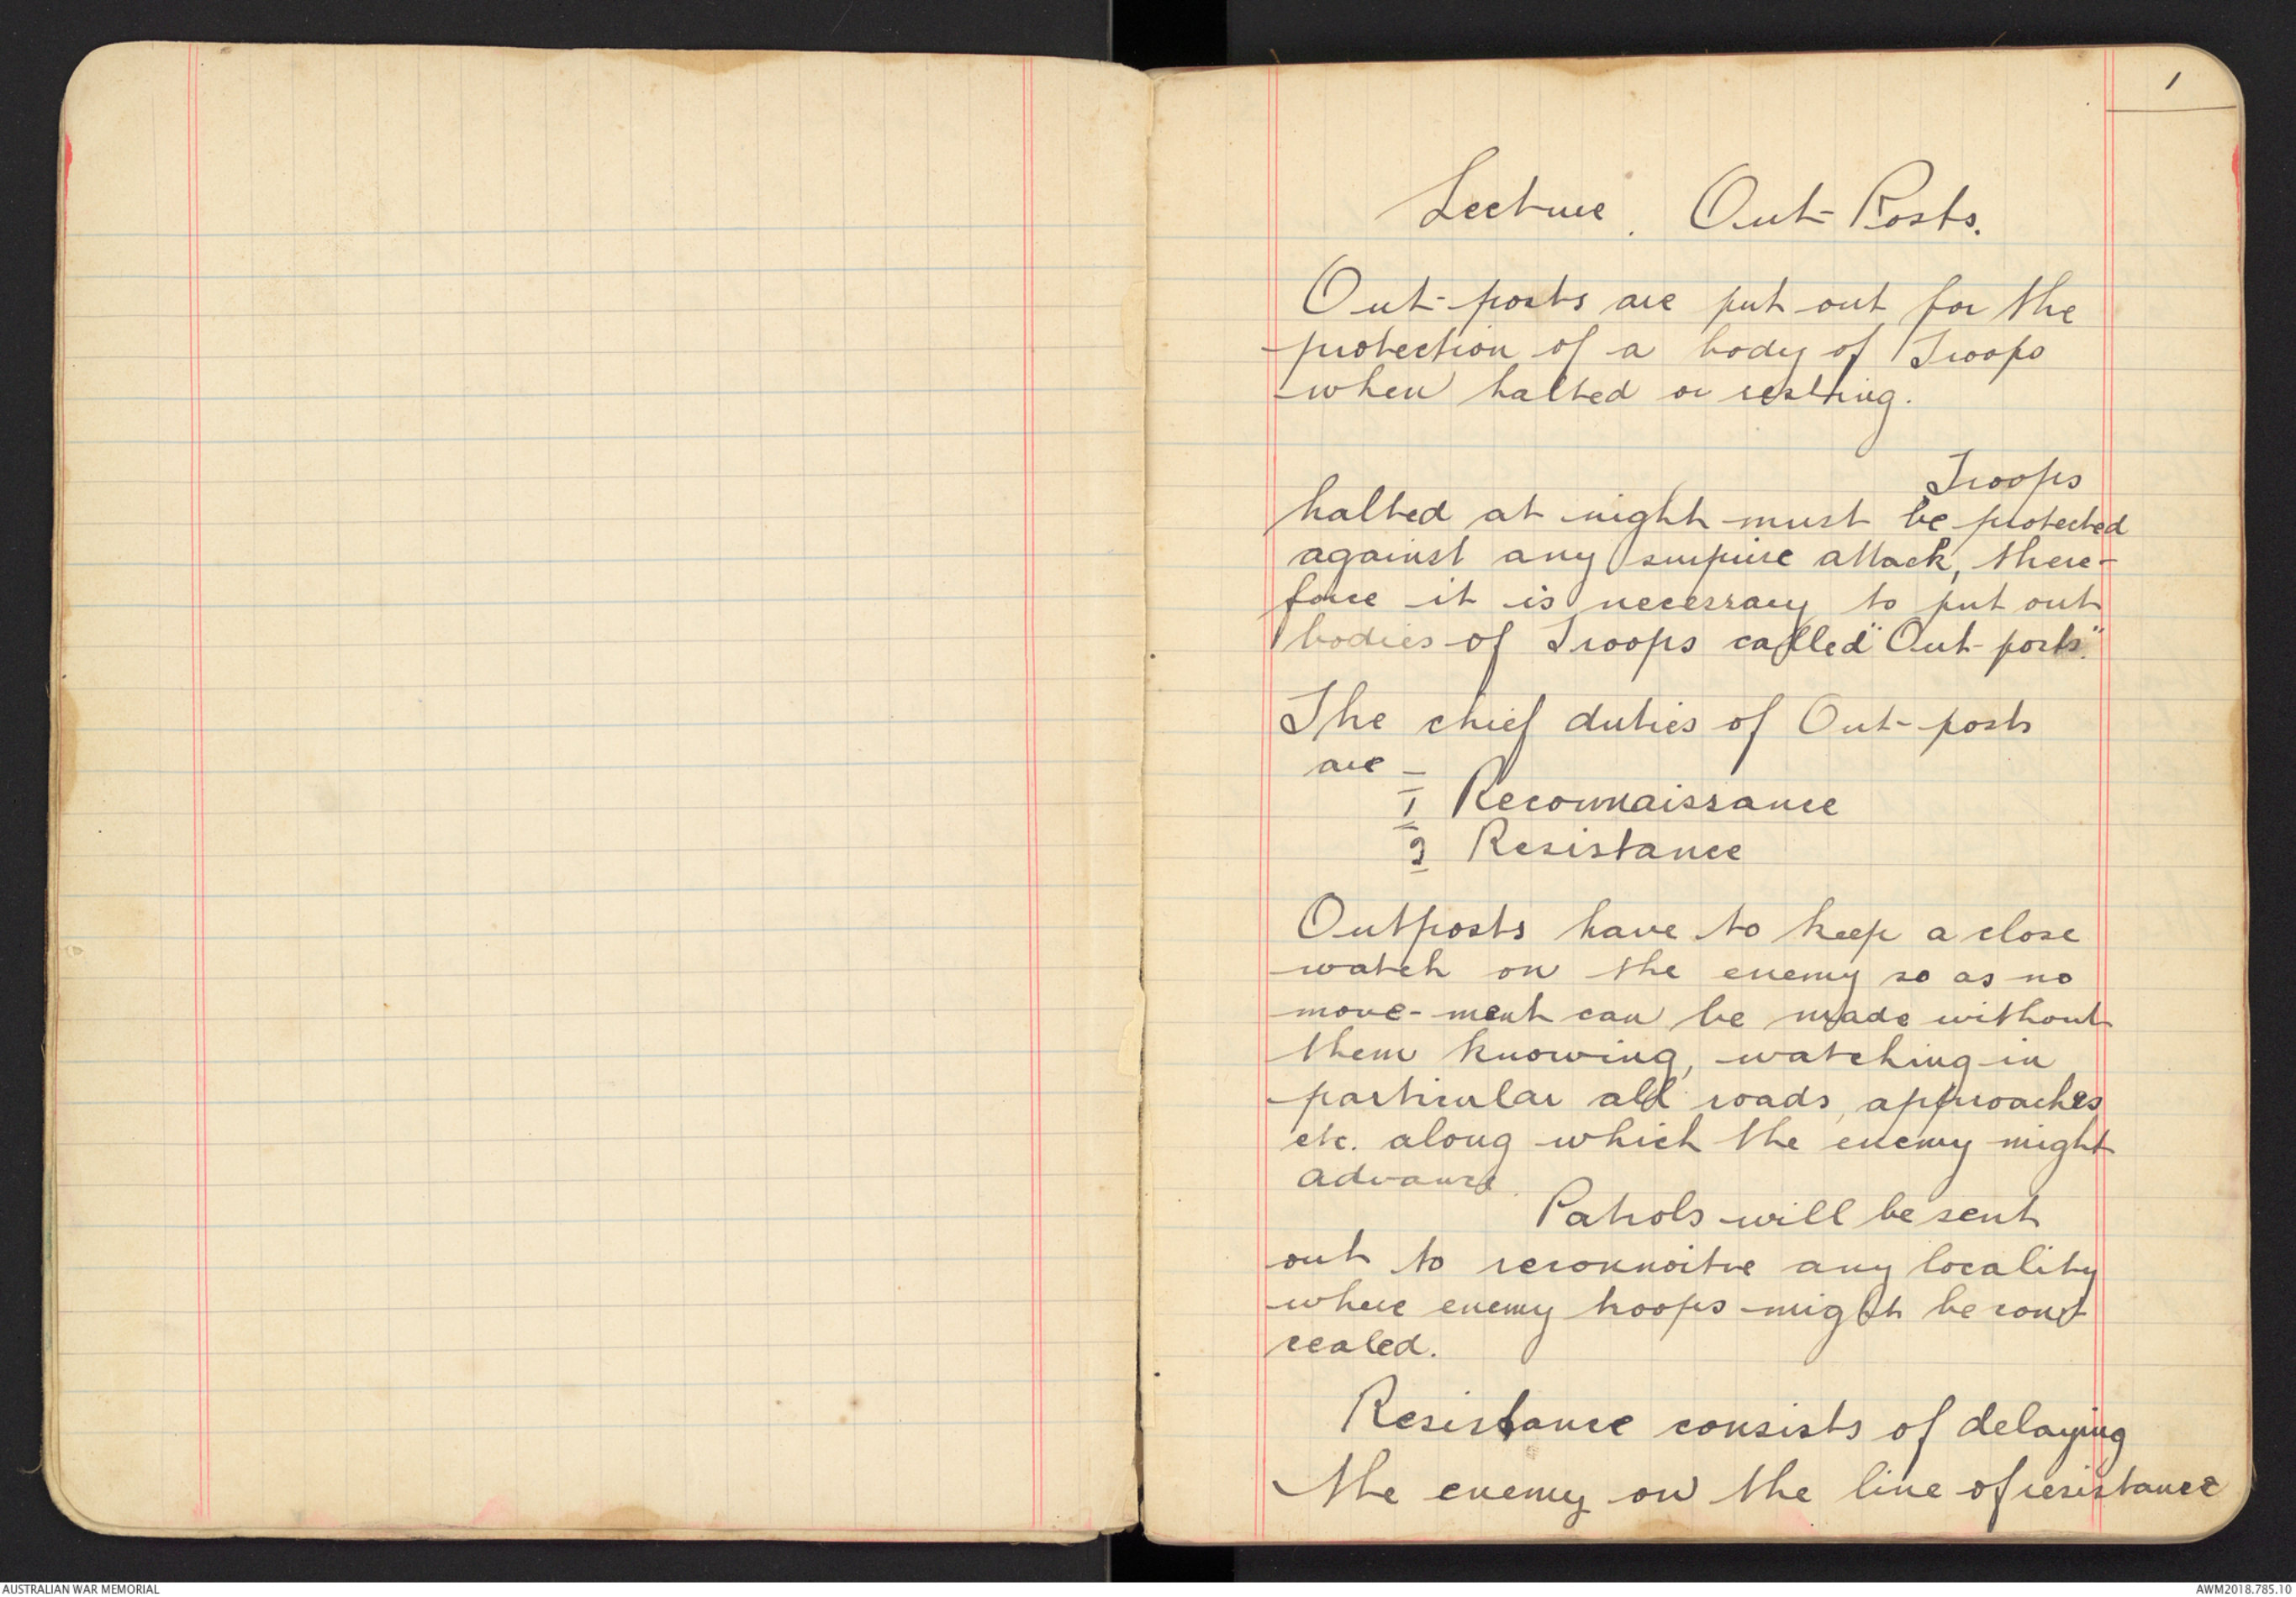 1
Lecture. Out-Posts.
Out-posts are put out for the
protection of a body of Troops
when halted or resting.
Troops
halted at night must be protected
against any surpise attack, there-
fore it is necessary to put out
bodies of Troops called "Out-posts."
The chief duties of Out-posts
are —
1 Reconnaissance
2 Resistance
Outposts have to keep a close
watch on the enemy so as no
move-ment can be made without
them knowing, watching in
particular all roads, approaches
etc. along which the enemy might
advance.
Patrols will be sent
out to reconnoitre any locality
where enemy troops might be con
cealed.
Resistance consists of delaying
the enemy on the line of resistance
AUSTRALIAN WAR MEMORIAL
AWM2018.785.10